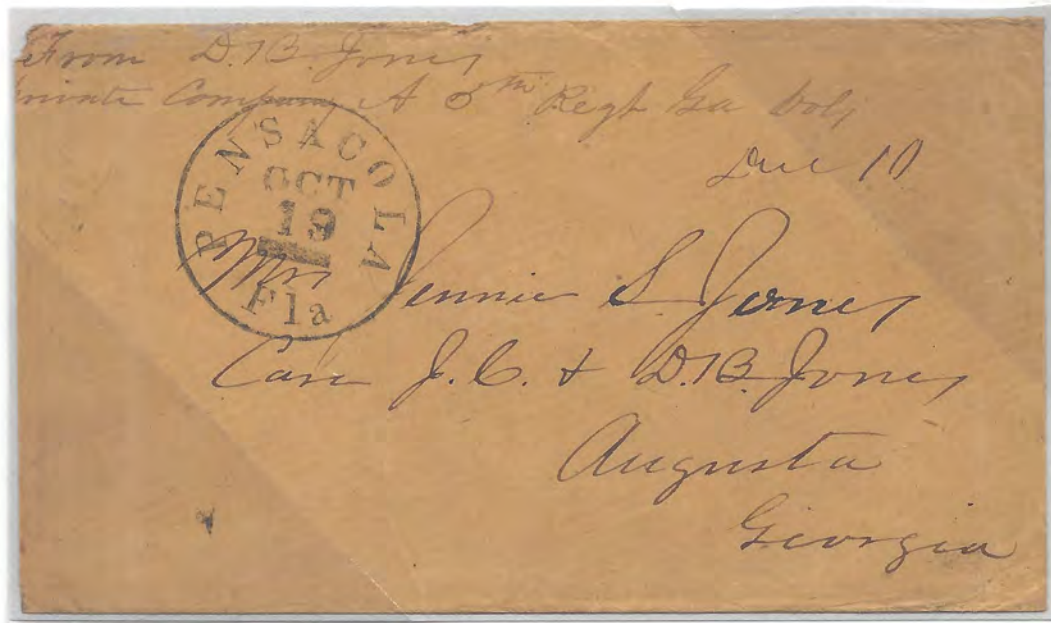 From D.B. Jones
Private Company A 5th Regt Ga Vols
Due 10
PENSACOLA Fla
OCT
19
Mrs Jennie S. Jones
Care J.C. & D.B. Jones
Augusta
Georgia